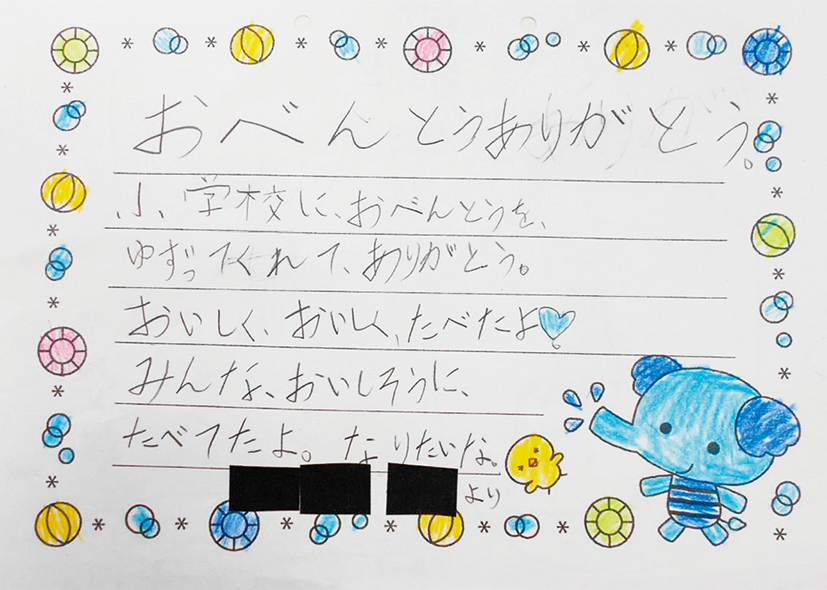 おべんとうありがとう。
小、学校に、おべんとうを、
ゆずってくれて、ありがとう。
おいしく、おいしく、たべたよ
みんな、おいしそうに、
たべてたよ。なりたいな。
より